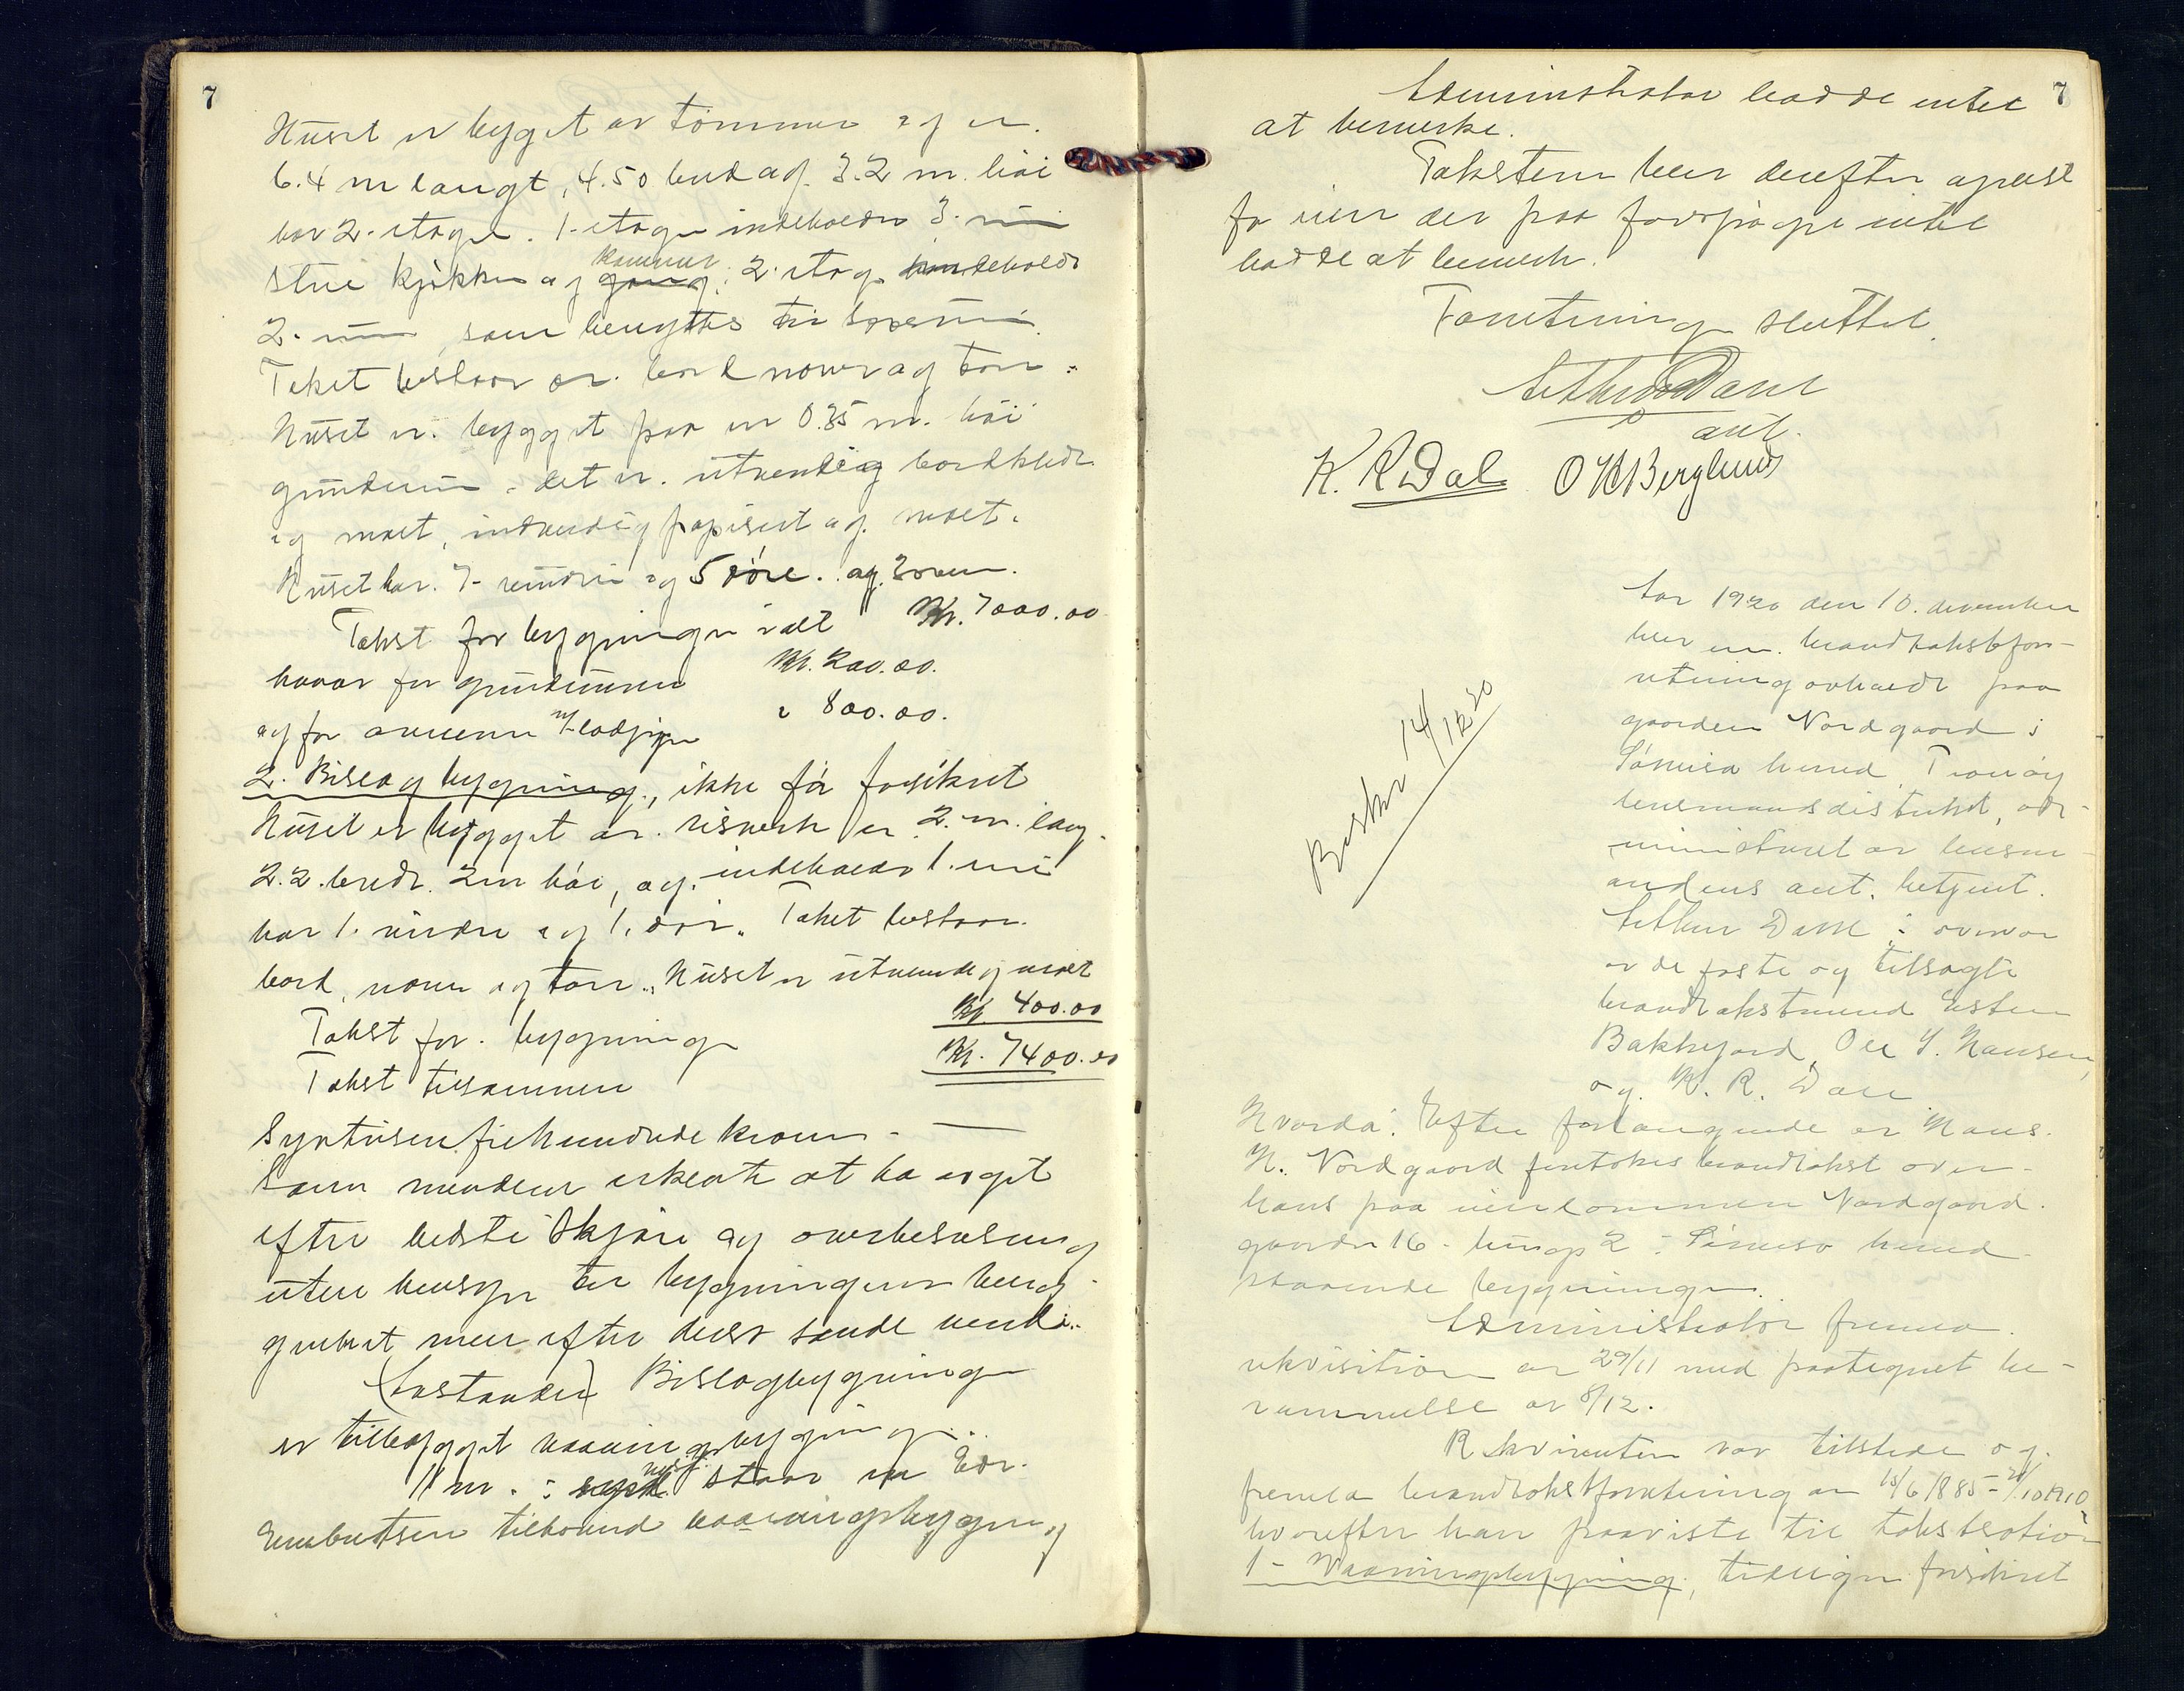 7
Huset er bygget av tømmer og er
6.4 m langt, 4.50 bred og 3.2 m. høi
har 2. etager. 1- etage indeholder 3. rum
stue kjøkken og gang, kammer 2. etag. indeholder
2. rum, som benyttes til soverum.
Taket bestaar av. bord næver og torv.
Huset er. bygget paa en 0.35 m. høi
grundmur - det er. utvendig bordklædt
og malt, indvendig papiseret og malt.
Huset har. 7- vinduer og 5 døre. og 3 ovne.
Takst for bygningen ialt Kr. 7000.00
hvorav for grundmuren Kr. 200.00.
og for ovnene m/ ledninger " 800.00.
2. Bislag bygning, ikke før forsikret
Huset er bygget av. reisverk er 2. m. lang.
2.2. bredt. 2 m høi, og. indeholder 1. rum
har 1. vindu og 1. dør. Taket bestaar
bord, næver og torv. Huset er utvendig malt
Takst for. bygningen Kr. 400.00
Takst tilsammen Kr. 7400.00
Syvtusenfirehundrede kroner -
Som mændene erkjendte at ha avgit
efter bedste skjøn og overbevisning
uten hensyn til bygningens belig-
genhet men efter dens sande værdi.
(Avstander) Bislagbygningen
er tilbygget vaaningsbygningen.
11 m. i nord staar en
Ernbertsen tilhørende vaaningsbygning
7
Administrator hadde intet
at bemerke.
Taksten blev derefter oplæst
for eier der paa forespørgsel intet
hadde at bemerke.
Forretningen sluttet.
Arthur Dahl
aut.
K. R Dal O H Berglund
Aar 1920 den 10. december
blev en. brandtakstfor-
retning avholdt paa
gaarden Nordgaard i
Sørreisa herred, Tranøy
lensmandsdistrikt, ad-
ministreret av lensm-
andens aut. betjent.
Arthur Dahl i overvær
av de faste og tilsagte
brandtakstmænd Esten
Bakkejord, Ole J. Hansen,
og. K. R. Dale
Beskr 14/12 20
Hvorda: Efter forlangende av Hans.
N. Nordgaard foretokes brandtakst over
hans paa eiendommen Nordgaard.
gaardsnr 16 - bruksnr 2 i Sørreisa herred
staaende bygninger.
Administrator fremla
rekvisition av 29/11 med paategnet be-
rammelse av 8/12.
Rekvirenten var tilstede og.
fremla brandtakstforretning av 15/6 1885 - 21/10 1910
hvorefter han paaviste til takstation
1 - Vaaningsbygning, tidligere forsikret